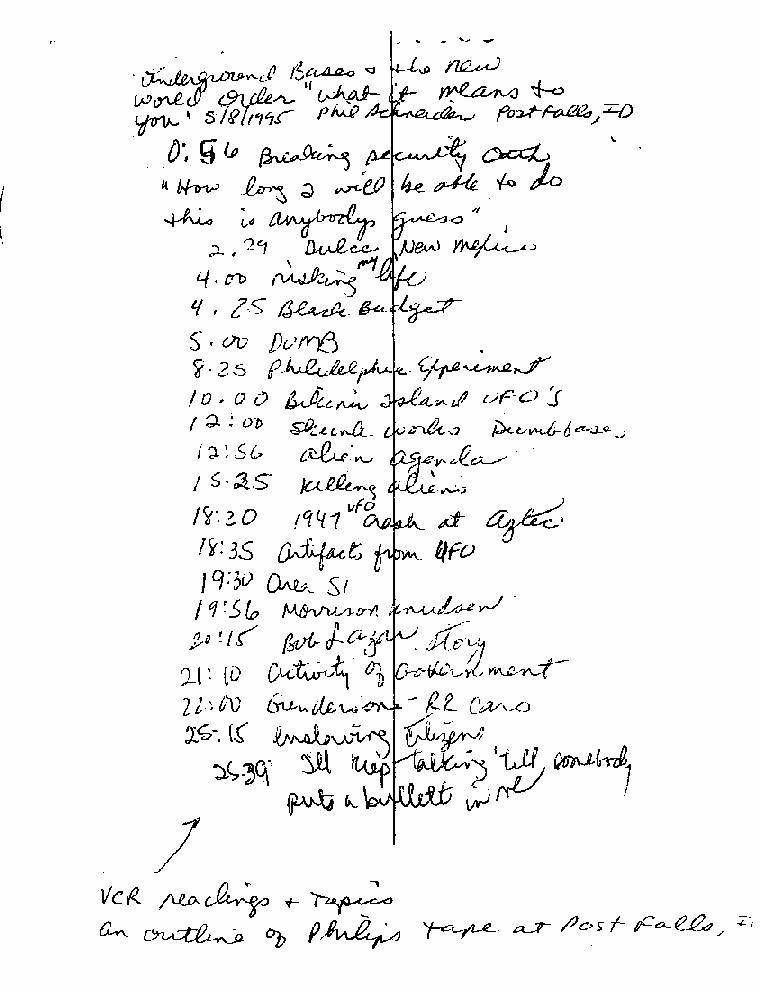 Underground Bases & the new
world order "what it means to
you" 5/8/1995 Phil Schneider Post Falls, ID
0:56 Breaking security oath
"How long I will be able to do
this is anybodys guess"
2.29 Dulce, New Mexico
4.00 risking my life
4.25 Black Budget
5.00 DUMB
8.25 Philidelphia Experiment
10.00 Bikini Island UFO'S
12:00 Skunk works Dumb base
12:56 alien agenda
15.25 killing aliens
18:20 1947 UFO Crash at Aztec
18:35 Artifacts from UFO
19:30 Area 51
19:56 Morrison Knudsen
20:15 Bob Lazar story
21:10 Activity of Government
22:00 Gunderson - RR Cars
25:15 Enslaving Citizens
25:39 I'll keep talking 'till somebody
puts a bullett in me
VCR readings + Topics
An outline of Philips tape at Post Falls, I